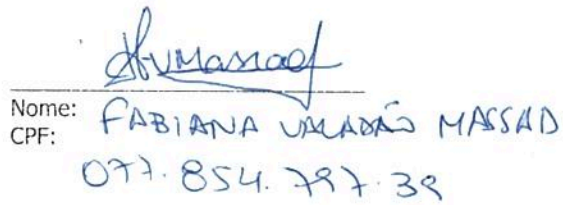 Nome: FABIANA VALADÃO MASSAD
CPF:
077.854.797.39